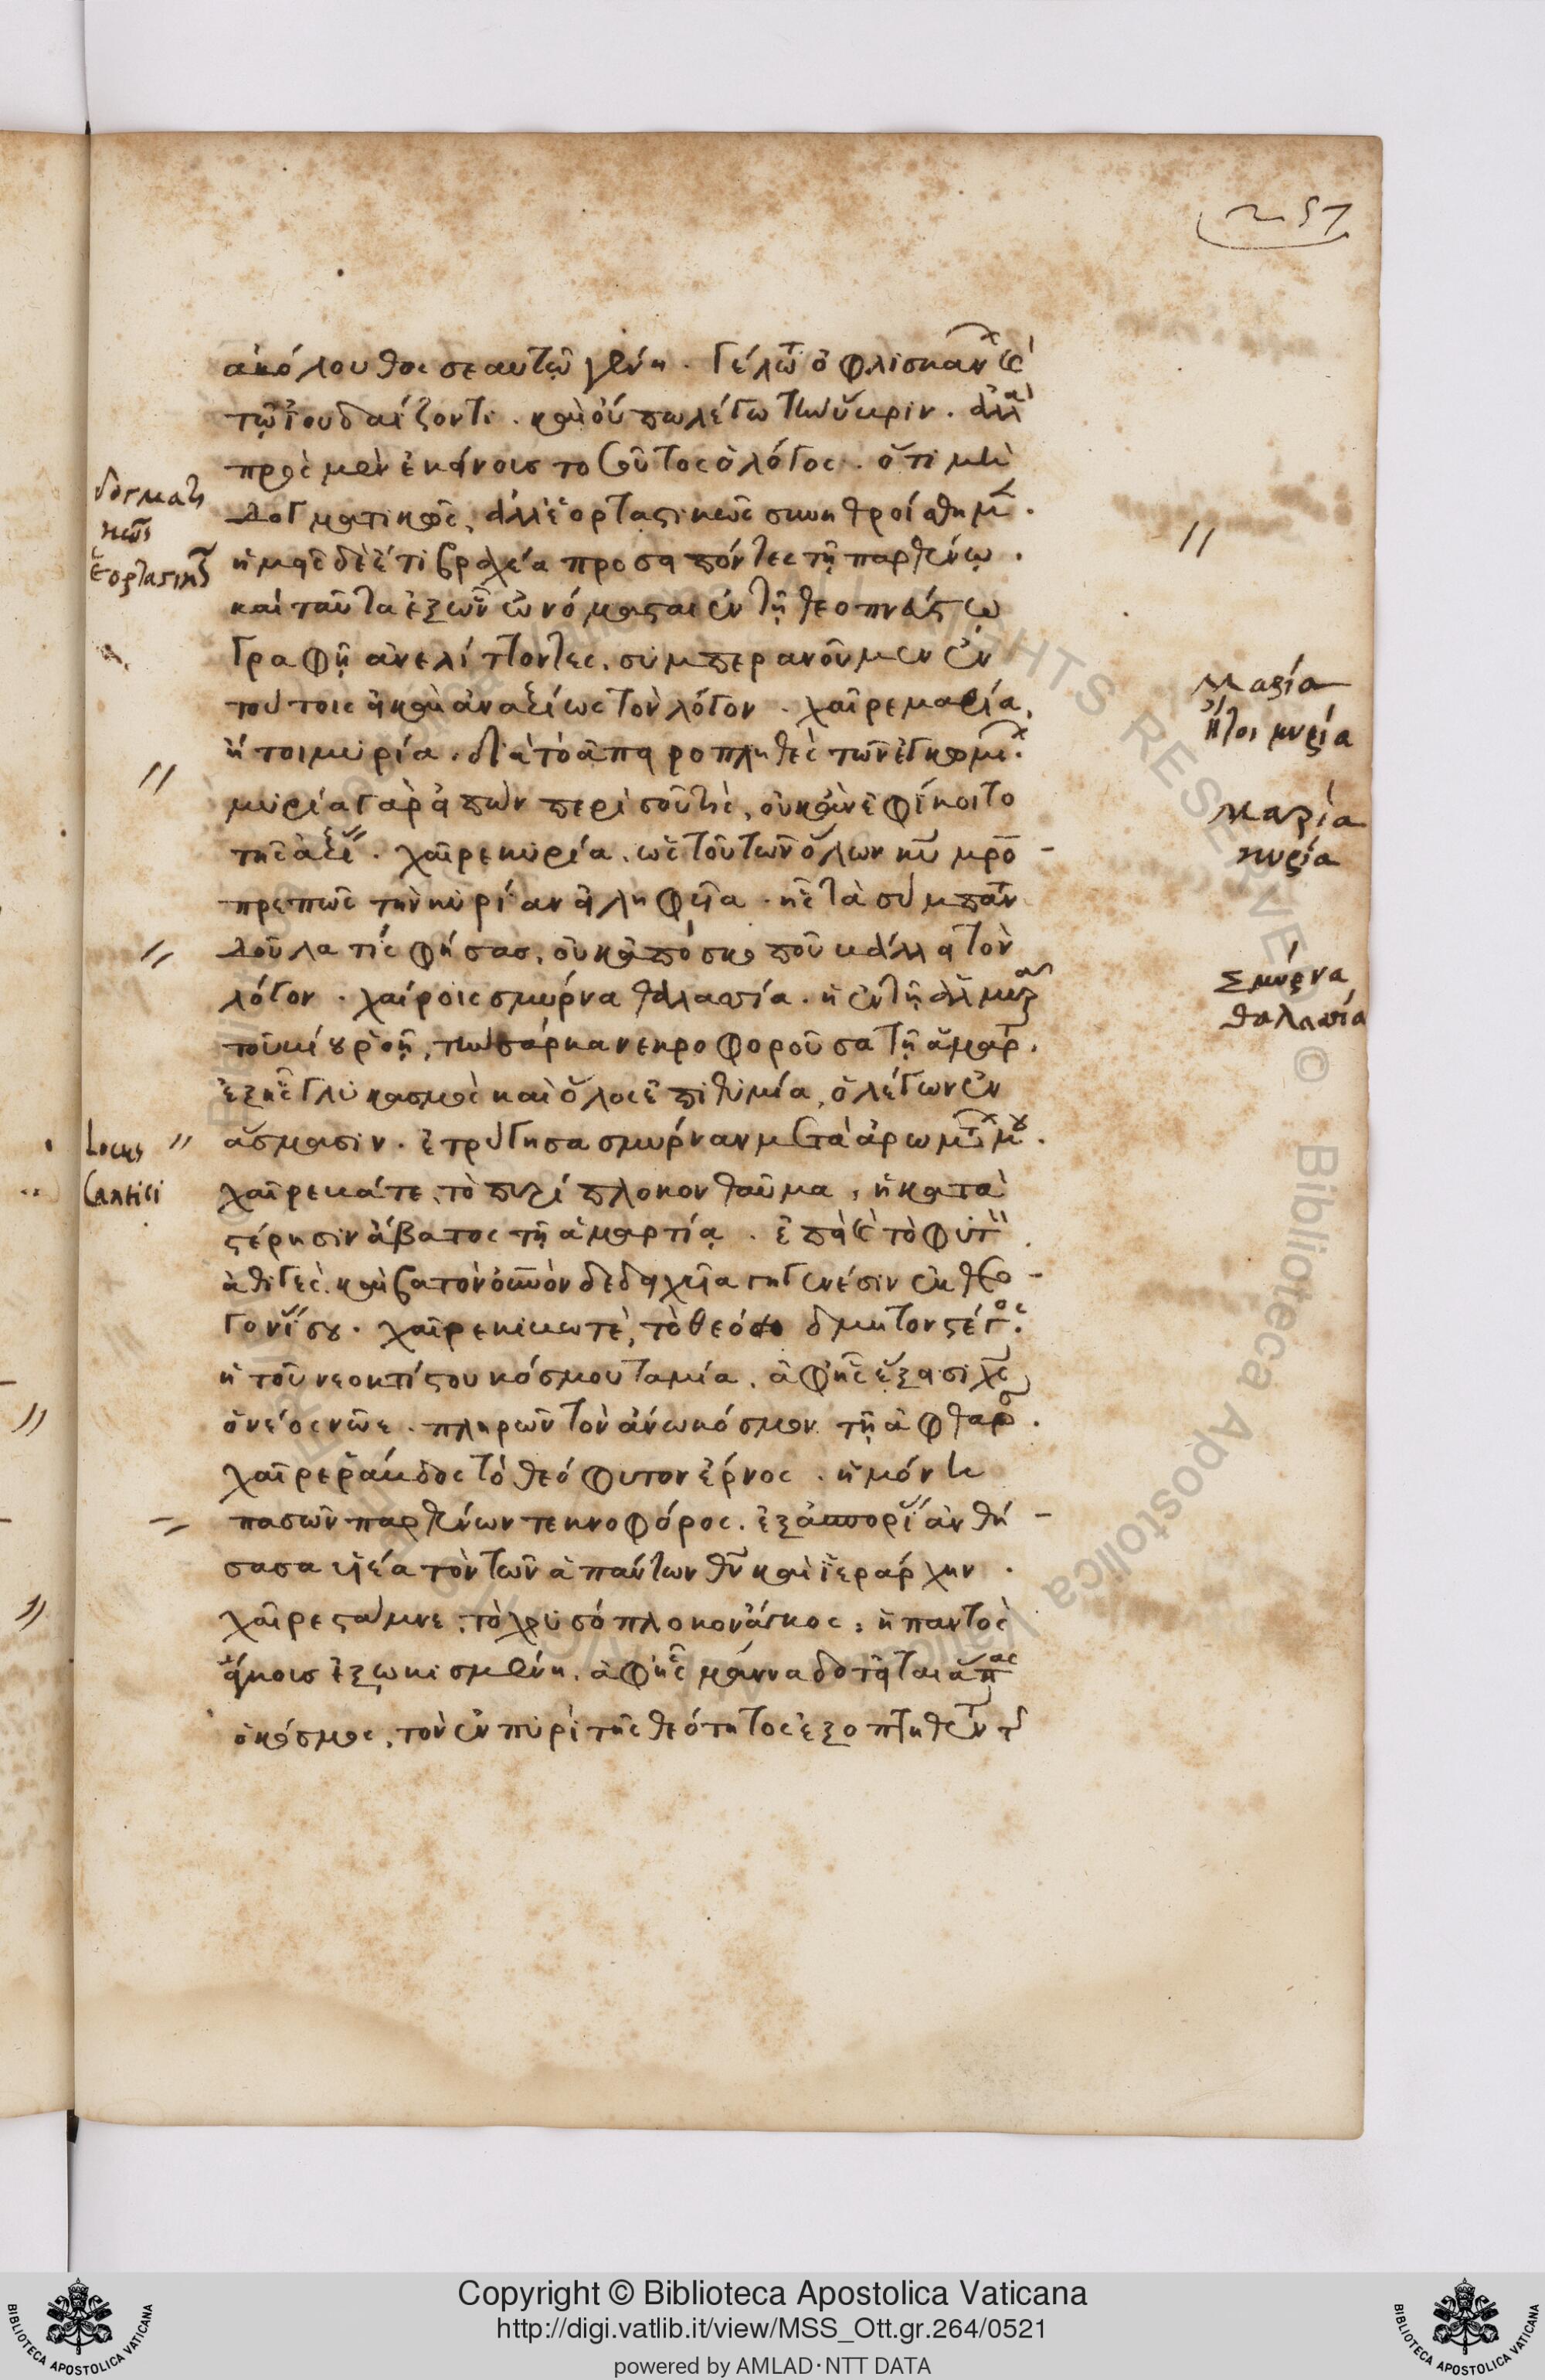 257
ἀκόλουθος σεαυτῶ γένη. γέλωτ ὀφλισκαν
τῶ ἰουδαΐζοντι. καὶ οὔπω λέγω τὴν ὕκριν. ἀλλὰ
πρὸς μὲν ἐκείνους τοσοῦτος ὁ λόγος. ὅτι μὴ
δογματικῶς, ἀλλ' ἑορταστικῶς συνηθροίσθημ.
ἡμεῖς δὲ ἔτι βραχέα προσειπόντες τῆ παρθένω.
καὶ ταῦτα ἐξ ὧν ὠνόμασται ἐν τῆ θεοπνεύστω
γραφῆ ἀνελίττοντες. συμπερανοῦμεν ἐν
τούτοις εἰ καὶ ἀναξίως τὸν λόγον. χαῖρε μαρία,
ἤτοι μυρία. διὰ τὸ ἀπειροπληθὲς τῶν ἐγκωμ.
μυρία γὰρ εἰπών περὶ σοῦ τὶς, οὐκ ἂν ἐφίκοιτο
τῆς ἀξί. χαῖρε κυρία. ὡς τοῦ τῶν ὅλων κυ μρο-
πρεπῶς τὴν κυρίαν εἰληφυῖα. ἧς τὰ σύμπαν
δοῦλα τίς φήσας, οὐκ ἀπὸ σκοποῦ βάλλει τὸν
λόγον. χαίροις σμύρνα θαλασσία. ἡ ἐν τῆ ἁλμυρ
τοῦ βίου ροῆ, τὴν σάρκα νεκροφοροῦσα τῆ ἁμαρτ.
ἐξ ἧς γλυκασμὸς καὶ ὅλος ἐπιθυμία, ὁ λέγων ἐν
ἄσμασιν. ἐτρύγησα σμύρναν μετὰ ἀρωμτ μου.
χαῖρε βάτε, τὸ πυρίπλοκον θαῦμα, ἡ κατὰ
στέρησιν ἄβατος τῆ ἁμαρτία. ἐπεὶ καὶ τὸ φυτ
ἀθιγὲς. καὶ βατὸν
γονίσου. χαῖρε κιβωτὲ, τὸ θεόδμητον στέγος.
ἡ τοῦ νεοκτίστου κόσμου ταμία. ἀφ' ἧς ἔξεισι χς
ὁ νέος νῶε. πληρῶν τὸν ἄνω κόσμον τῆ ἀφθαρσ.
χαῖρε ῥάβδος τὸ θεόφυτον ἔρνος. ἡ μόνη
πασῶν παρθένων τεκνοφόρος. ἐξ ἀσπορί ἀνθή-
σασα ϊερέα τὸν τῶν ἁπάντων θν καὶ ἱεράρχην.
χαῖρε στάμνε, τὸ χρυσόπλοκον ἄγγος. ἡ παντὸς
ἄγκους ἐξωκισμένη, ἀφ' ἧς μάννα δοτεῖται ἅπας
ὁ κόσμος, τὸν ἐν πυρὶ τῆς θεότητος ἐξοπτηθέντ
δογματι
κῶς
ἑορταστικῶς
Locus
Cantici
Μαρία
ἤτοι μυρία
Μαρία
κυρία
Σμύρνα
θαλασσία
Copyright © Biblioteca Apostolica Vaticana
http://digi.vatlib.it/view/MSS_Ott.gr.264/0521
powered by AMLAD·NTT DATA
BIBLIOTECA APOSTOLICA VATICANA
BIBLIOTECA APOSTOLICA VATICANA